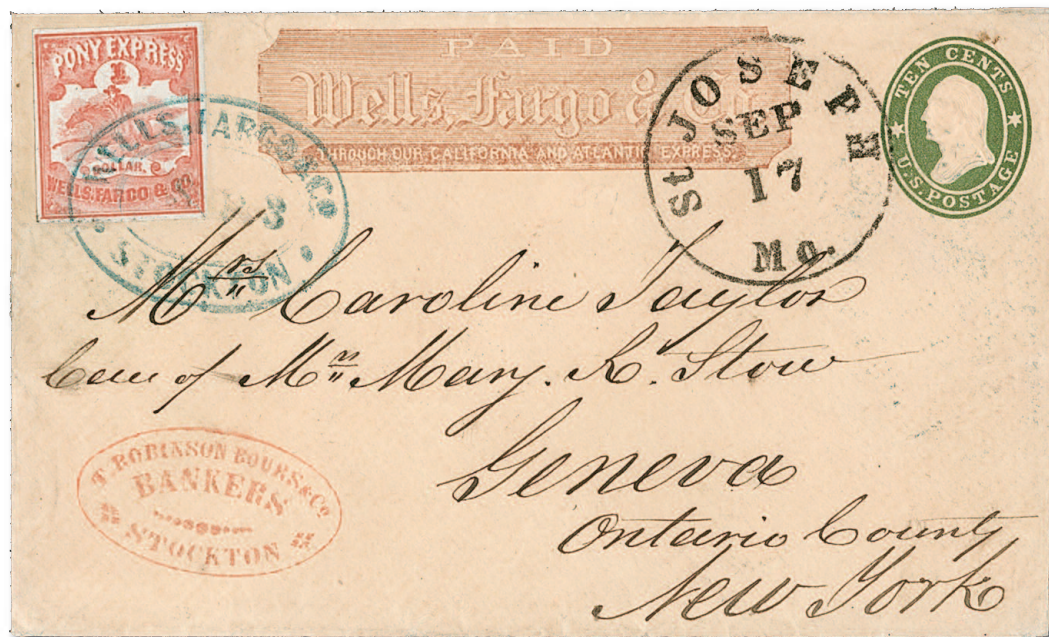 PONY EXPRESS
1
DOLLAR.
WELLS, FARGO & Co
PAID
Wells, Fargo & Co.
THROUGH OUR CALIFORNIA AND ATLANTIC EXPRESS.
WELLS, FARGO & Co
3
STOCKTON
St JOSEPH
SEP
17
Mo.
TEN CENTS
U.S. POSTAGE
Mrs Caroline Taylor
Care of Mrs Mary. R. Stow
Geneva
Ontario County
New York
T. ROBINSON BOURS & Co
BANKERS
STOCKTON